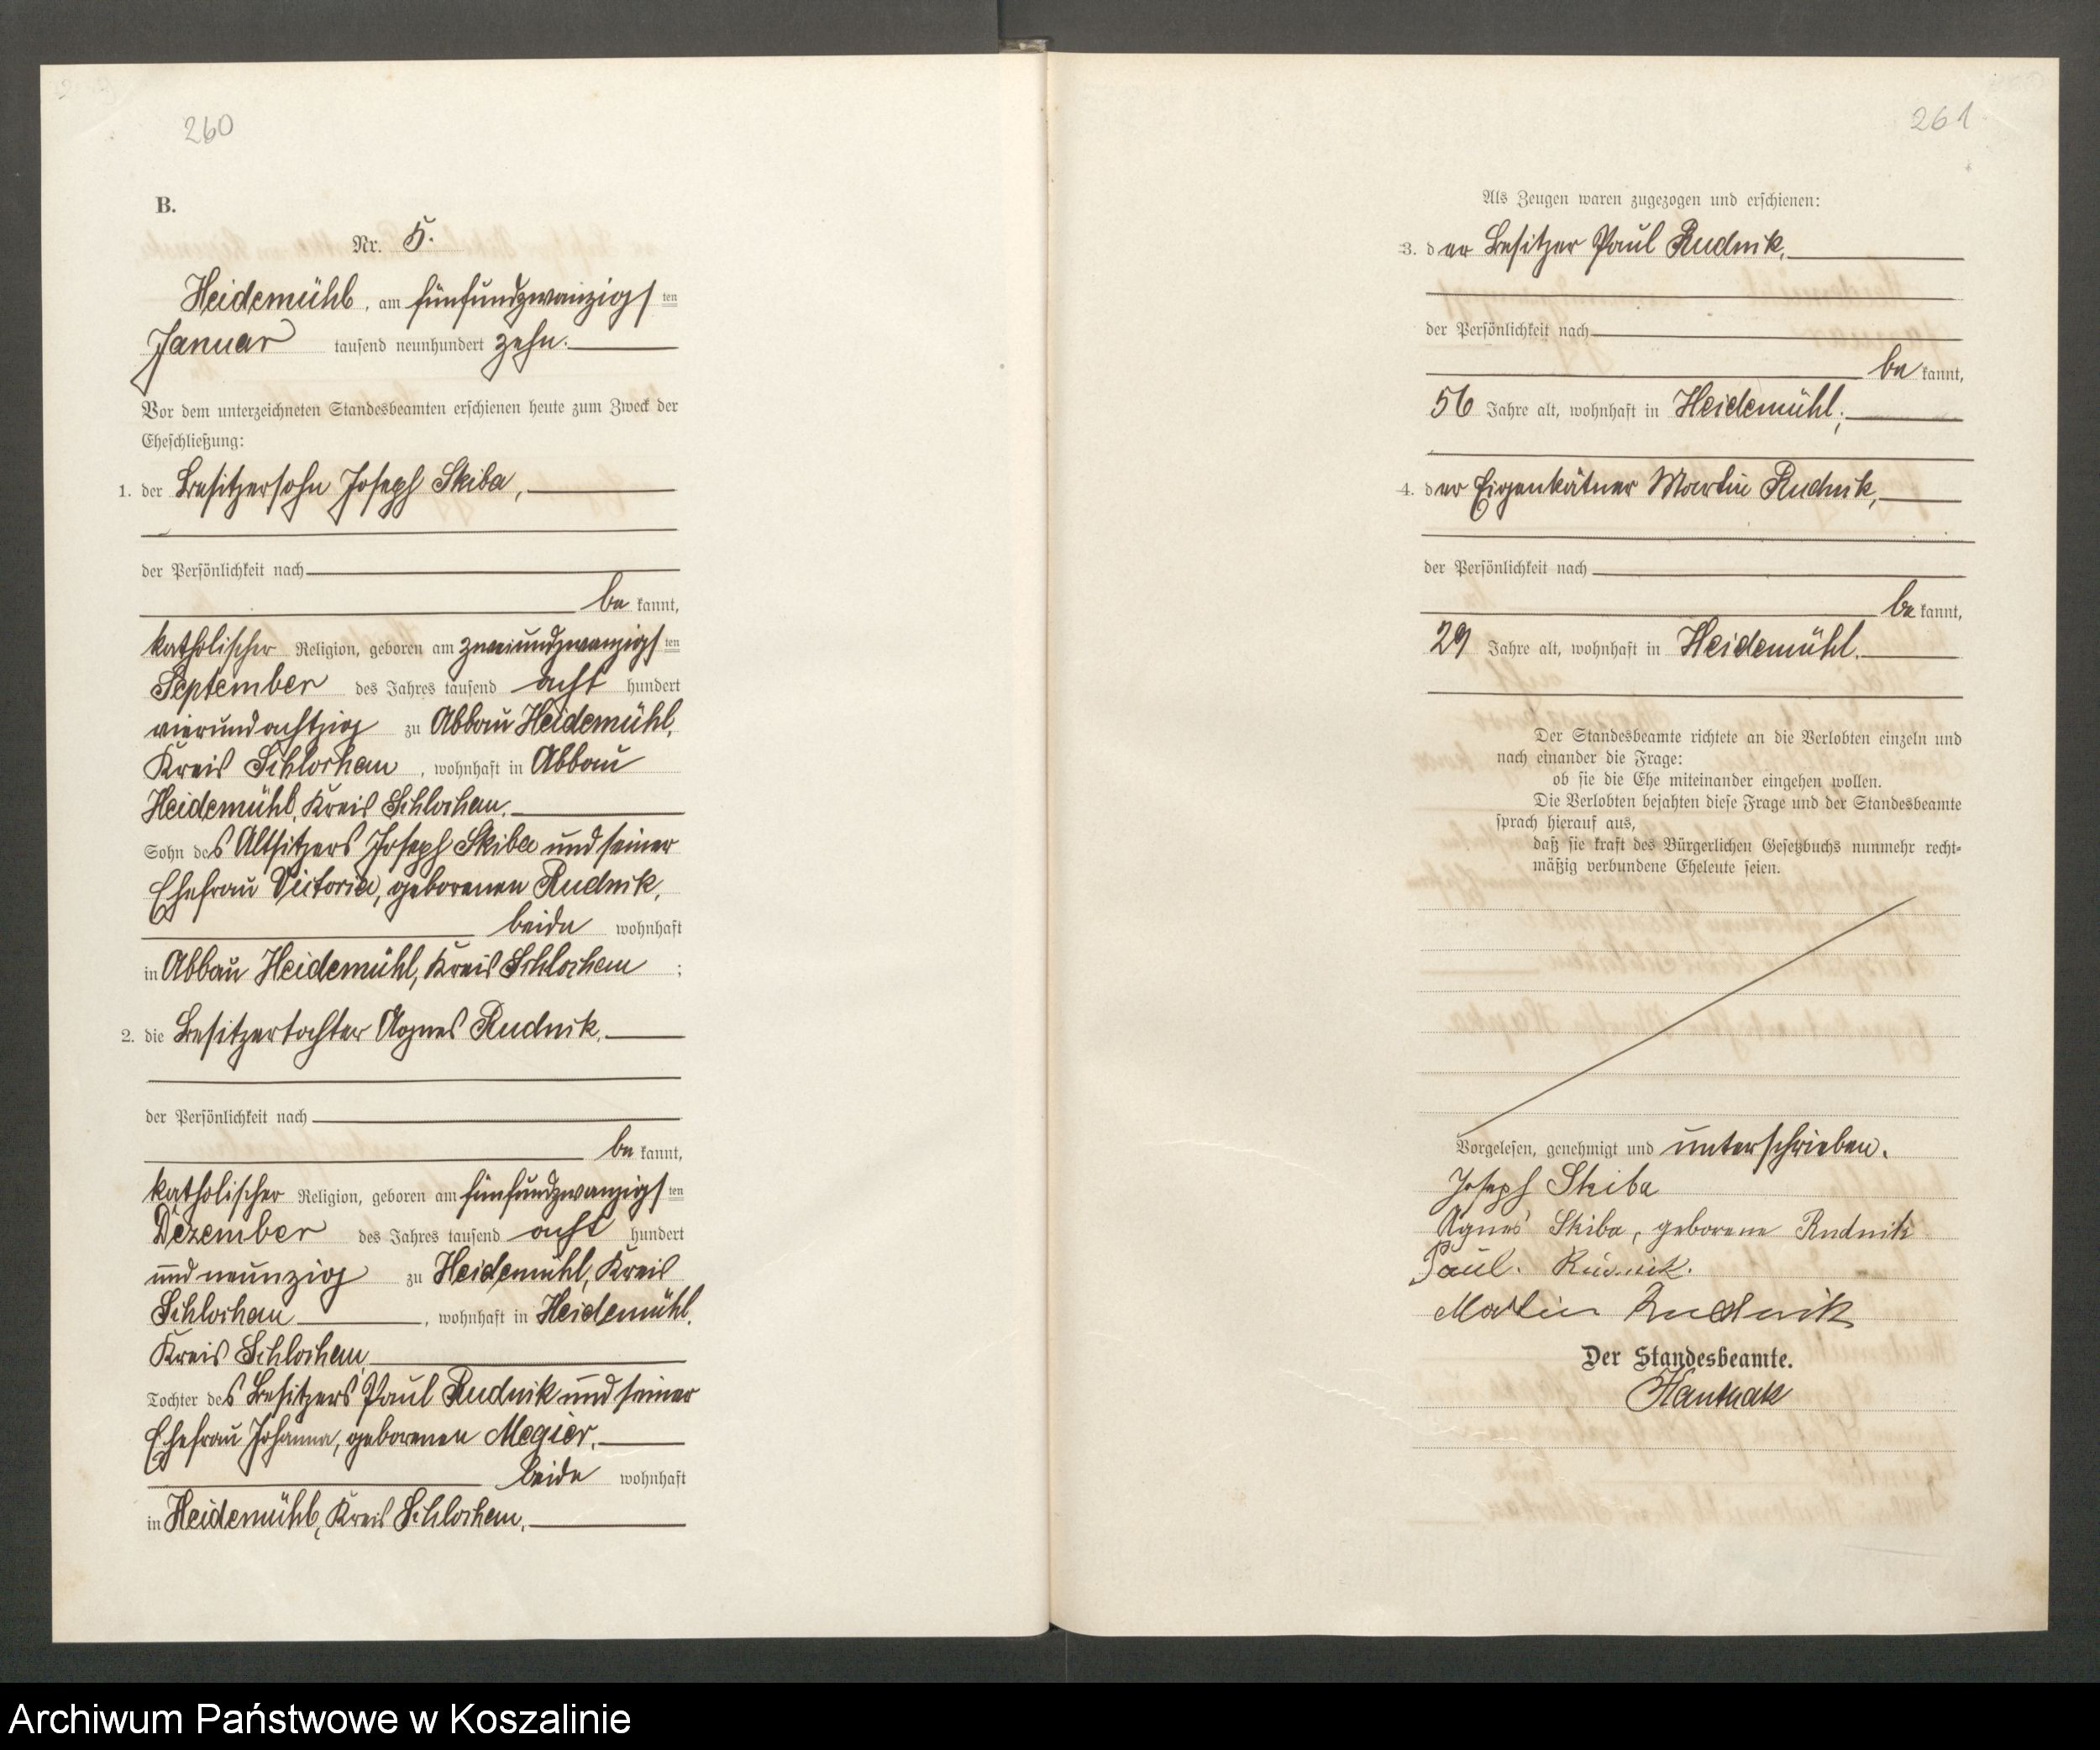 260
B.
Nr. 5.
Heidemühl, am fünfundzwanzigsten
Januar tausend neunhundert zehn.
Vor dem unterzeichneten Standesbeamten erschienen heute zum Zweck der
Eheschließung:
1. der Besitzersohn Joseph Skiba,
der Persönlichkeit nach
be kannt,
katholischer Religion, geboren am zweiundzwanzigsten
September des Jahres tausend acht hundert
vierundachtzig zu Abbau Heidemühl,
Kreis Schlochau, wohnhaft in Abbau
Heidemühl, Kreis Schlochau.
Sohn des Altsitzers Joseph Skiba und seiner
Ehefrau Victoria, geborenen Rudnik,
beide wohnhaft
in Abbau Heidemühl, Kreis Schlochau;
2. die Besitzertochter Agnes Rudnik,
der Persönlichkeit nach
be kannt,
katholischer Religion, geboren am fünfundzwanzigsten
Dezember des Jahres tausend acht hundert
und neunzig zu Heidemühl, Kreis
Schlochau, wohnhaft in Heidemühl,
Kreis Schlochau,
Tochter des Besitzers Paul Rudnik und seiner
Ehefrau Johanna, geborenen Megier,
beide wohnhaft
in Heidemühl, Kreis Schlochau.
261
Als Zeugen waren zugezogen und erschienen:
3. der Besitzer Paul Rudnik,
der Persönlichkeit nach
be kannt,
56 Jahre alt, wohnhaft in Heidemühl;
4. der Eigenkätner Martin Rudnik,
der Persönlichkeit nach
be kannt,
29 Jahre alt, wohnhaft in Heidemühl.
Der Standesbeamte richtete an die Verlobten einzeln und
nach einander die Frage:
ob sie die Ehe miteinander eingehen wollen.
Die Verlobten bejahten diese Frage und der Standesbeamte
sprach hierauf aus,
daß sie kraft des Bürgerlichen Gesetzbuchs nunmehr recht-
mäßig verbundene Eheleute seien.
Vorgelesen, genehmigt und unterschrieben.
Joseph Skiba
Agnes Skiba, geborene Rudnik
Paul. Rudnik.
Martin Rudnik
Der Standesbeamte.
Archiwum Państwowe w Koszalinie